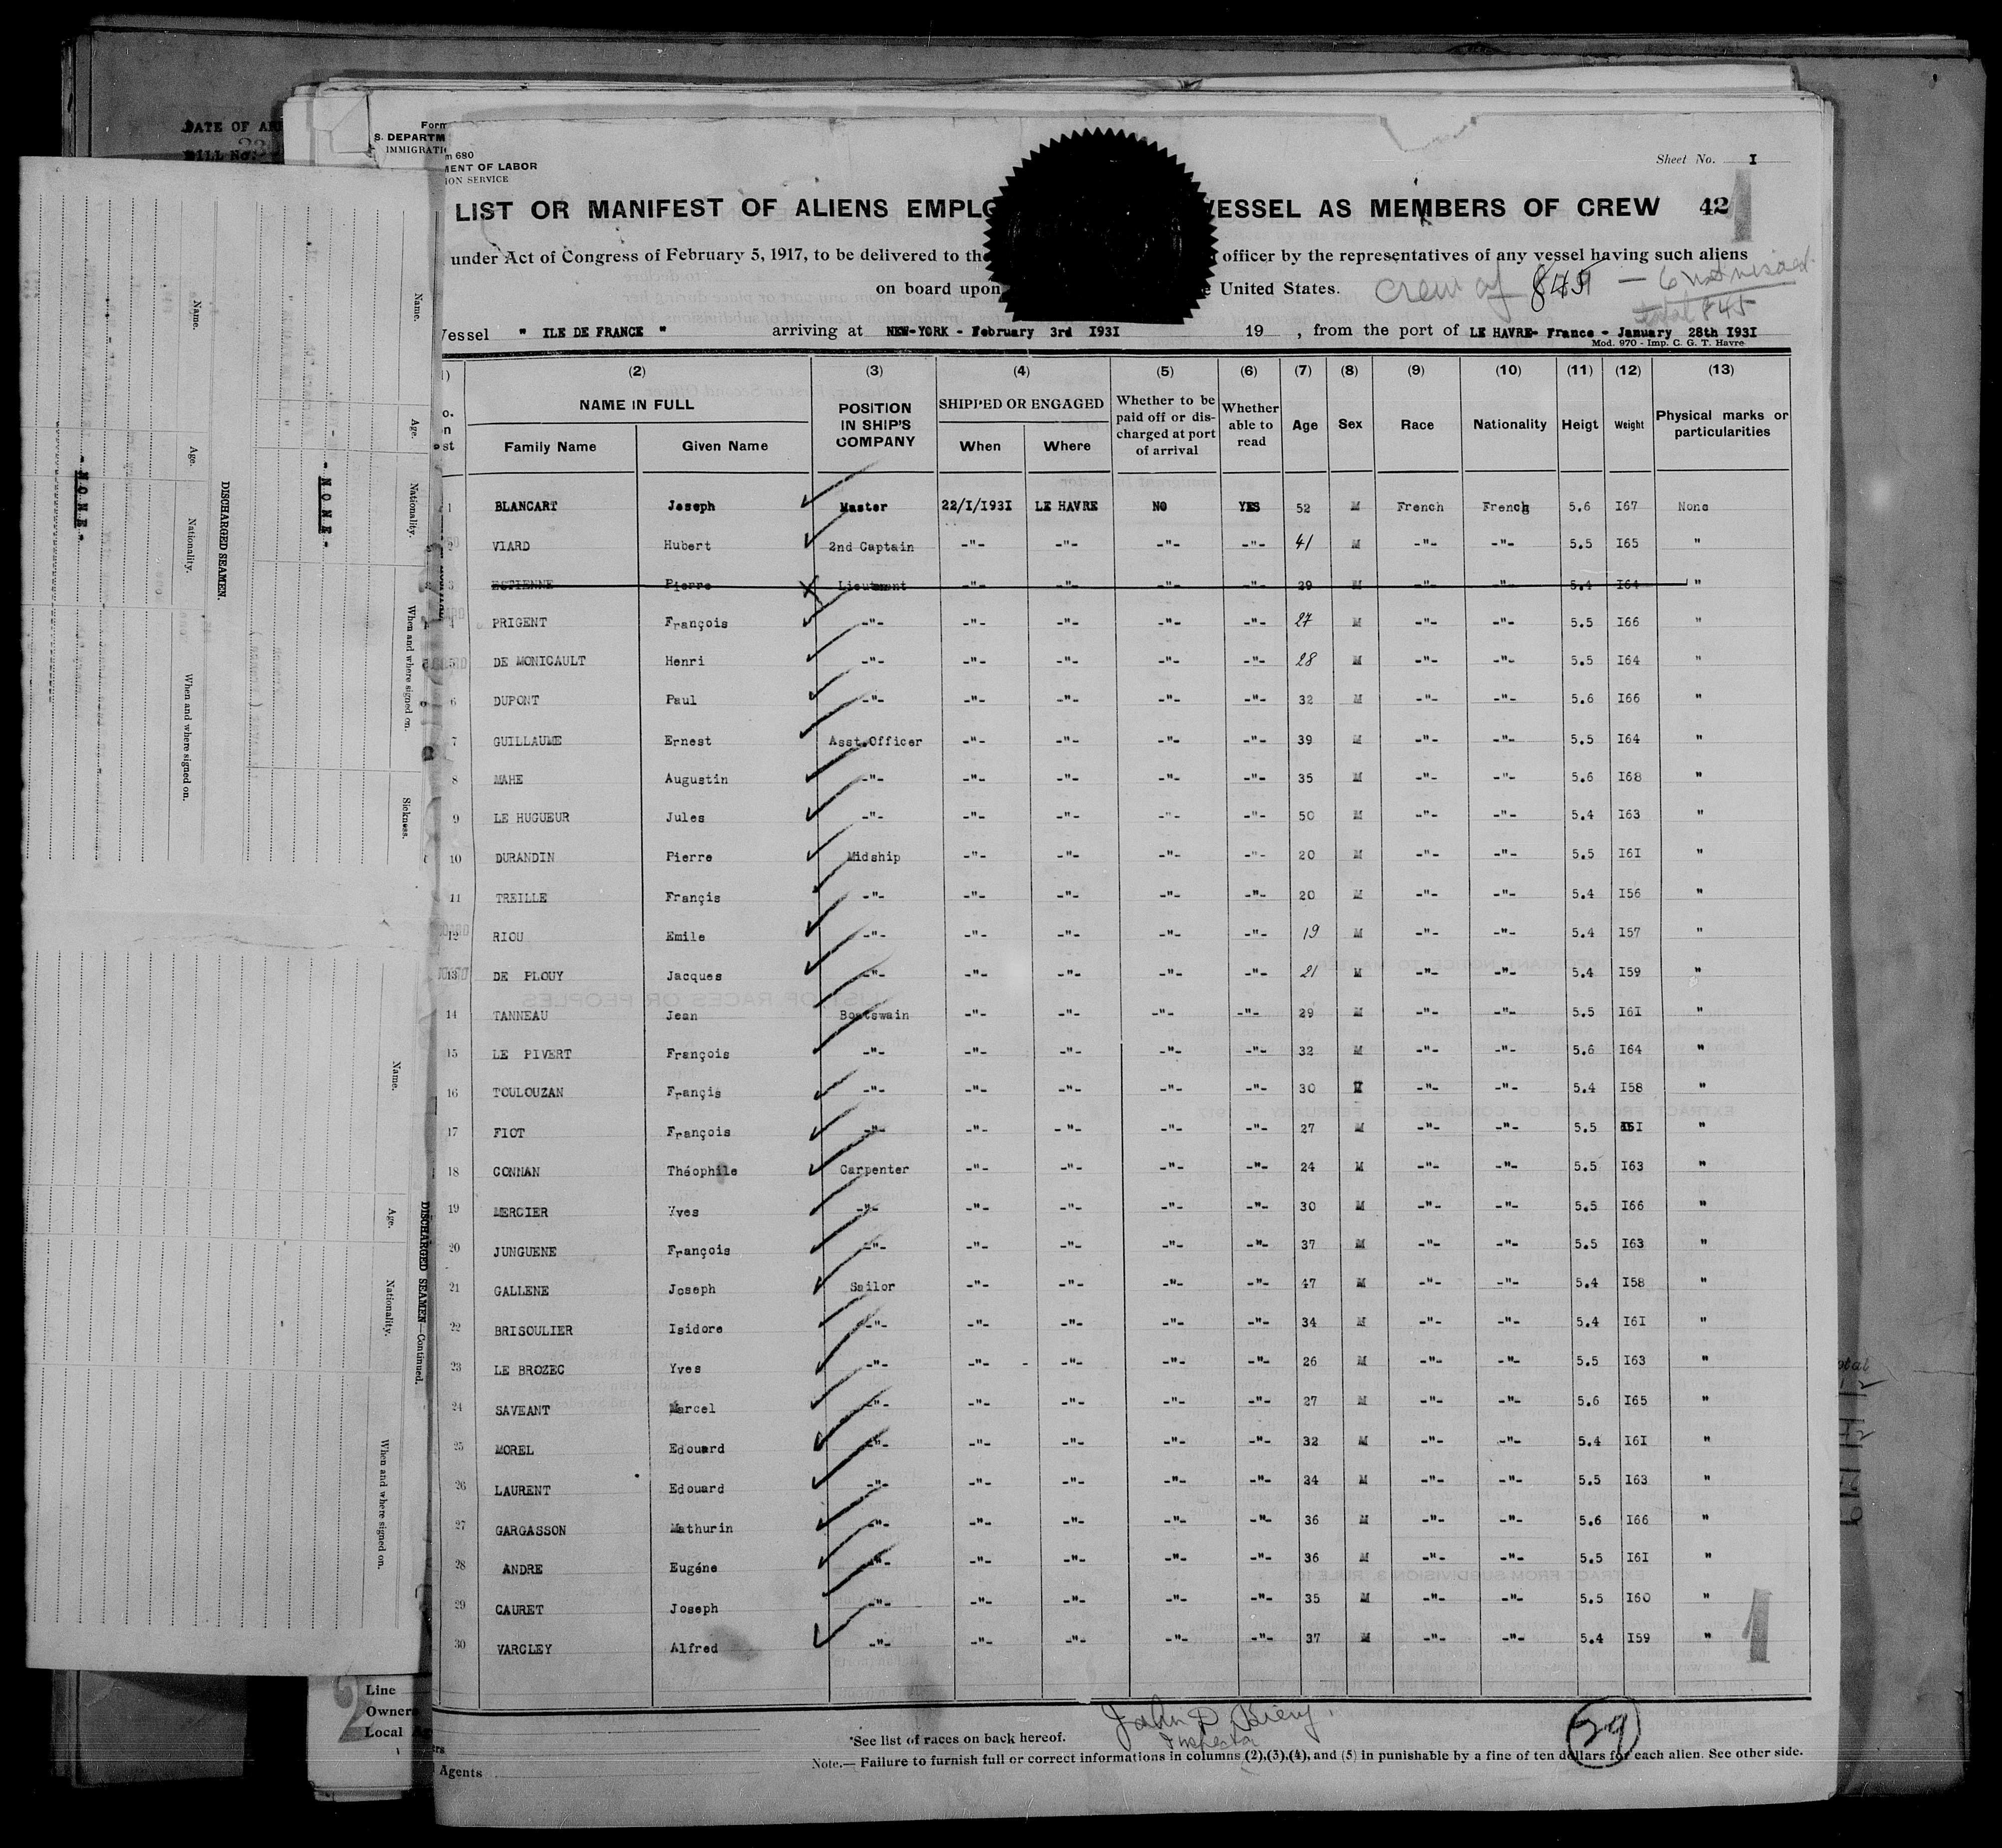 DATE OF
BILL No.
Form
S. DEPARTM
IMMIGRATI
m 680
MENT OF LABOR
ION SERVICE
Sheet No. I
LIST OR MANIFEST OF ALIENS EMPLO VESSEL AS MEMBERS OF CREW 42
under Act of Congress of February 5, 1917, to be delivered to the officer by the representatives of any vessel having such aliens
on board upon e United States. Crew of
total 845
Vessel " ILE DE FRANCE " arriving at NEW-YORK - February 3rd I93I 19 , from the port of LE HAVRE- France - January 28th I93I
Mod. 970 - Imp. C. G. T. Havre
(2) (3) (4) (5) (6) (7) (8) (9) (10) (11) (12) (13)
NAME IN FULL POSITION IN SHIP'S COMPANY SHIPPED OR ENGAGED Whether to be paid off or dis-charged at port of arrival Whether able to read Age Sex Race Nationality Heigt Weight Physical marks or particularities
Family Name Given Name When Where
1 BLANCART Joseph Master 22/I/I93I LE HAVRE NO YES 52 M French French 5.6 I67 None
2 VIARD Hubert 2nd Captain -"- -"- -"- -"- 41 M -"- -"- 5.5 I65 "
3 ESTIENNE Pierre Lieutenant -"- -"- -"- -"- 29 M -"- -"- 5.4 I64 "
4 PRIGENT François -"- -"- -"- -"- -"- 27 M -"- -"- 5.5 I66 "
5 DE MONICAULT Henri -"- -"- -"- -"- -"- 28 M -"- -"- 5.5 I64 "
6 DUPONT Paul -"- -"- -"- -"- -"- 32 M -"- -"- 5.6 I66 "
7 GUILLAUME Ernest Asst.Officer -"- -"- -"- -"- 39 M -"- -"- 5.5 I64 "
8 MAHE Augustin -"- -"- -"- -"- -"- 35 M -"- -"- 5.6 I68 "
9 LE HUGUEUR Jules -"- -"- -"- -"- -"- 50 M -"- -"- 5.4 I63 "
10 DURANDIN Pierre Midship -"- -"- -"- -"- 20 M -"- -"- 5.5 I6I "
11 TREILLE Françis -"- -"- -"- -"- -"- 20 M -"- -"- 5.4 I56 "
12 RIOU Emile -"- -"- -"- -"- -"- 19 M -"- -"- 5.4 I57 "
13 DE PLOUY Jacques -"- -"- -"- -"- -"- 21 M -"- -"- 5.4 I59 "
14 TANNEAU Jean Boatswain -"- -"- -"- -"- 29 M -"- -"- 5.5 I6I "
15 LE PIVERT François -"- -"- -"- -"- -"- 32 M -"- -"- 5.6 I64 "
16 TOULOUZAN Françis -"- -"- -"- -"- -"- 30 M -"- -"- 5.4 I58 "
17 FIOT François -"- -"- -"- -"- -"- 27 M -"- -"- 5.5 "
18 CONNAN Théophile Carpenter -"- -"- -"- -"- 24 M -"- -"- 5.5 I63 "
19 MERCIER Yves -"- -"- -"- -"- -"- 30 M -"- -"- 5.5 I66 "
20 JUNGUENE François -"- -"- -"- -"- -"- 37 M -"- -"- 5.5 I63 "
21 GALLENE Joseph Sailor -"- -"- -"- -"- 47 M -"- -"- 5.4 I58 "
22 BRISOULIER Isidore -"- -"- -"- -"- -"- 34 M -"- -"- 5.4 I6I "
23 LE BROZEC Yves -"- -"- -"- -"- -"- 26 M -"- -"- 5.5 I63 "
24 SAVEANT Marcel -"- -"- -"- -"- -"- 27 M -"- -"- 5.6 I65 "
25 MOREL Edouard -"- -"- -"- -"- -"- 32 M -"- -"- 5.4 I6I "
26 LAURENT Edouard -"- -"- -"- -"- -"- 24 M -"- -"- 5.5 I63 "
27 GARGASSON Mathurin -"- -"- -"- -"- -"- 36 M -"- -"- 5.6 I66 "
28 ANDRE Eugéne -"- -"- -"- -"- -"- 36 M -"- -"- 5.5 I6I "
29 CAURET Joseph -"- -"- -"- -"- -"- 35 M -"- -"- 5.5 I60 "
30 VARCLEY Alfred -"- -"- -"- -"- -"- 37 M -"- -"- 5.4 I59 "
John P.
Inspector
29
*See list of races on back hereof.
Note.— Failure to furnish full or correct informations in columns (2),(3),(4), and (5) in punishable by a fine of ten dollars for each alien. See other side.
Agents
Line
Owners
Local
Name. Age. Nationality. When and where signed on. Sickness.
- N O N E -
DISCHARGED SEAMEN.
Name. Age. Nationality. When and where signed on.
- N O N E -
DISCHARGED SEAMEN—Continued.
Name. Age. Nationality. When and where signed on.